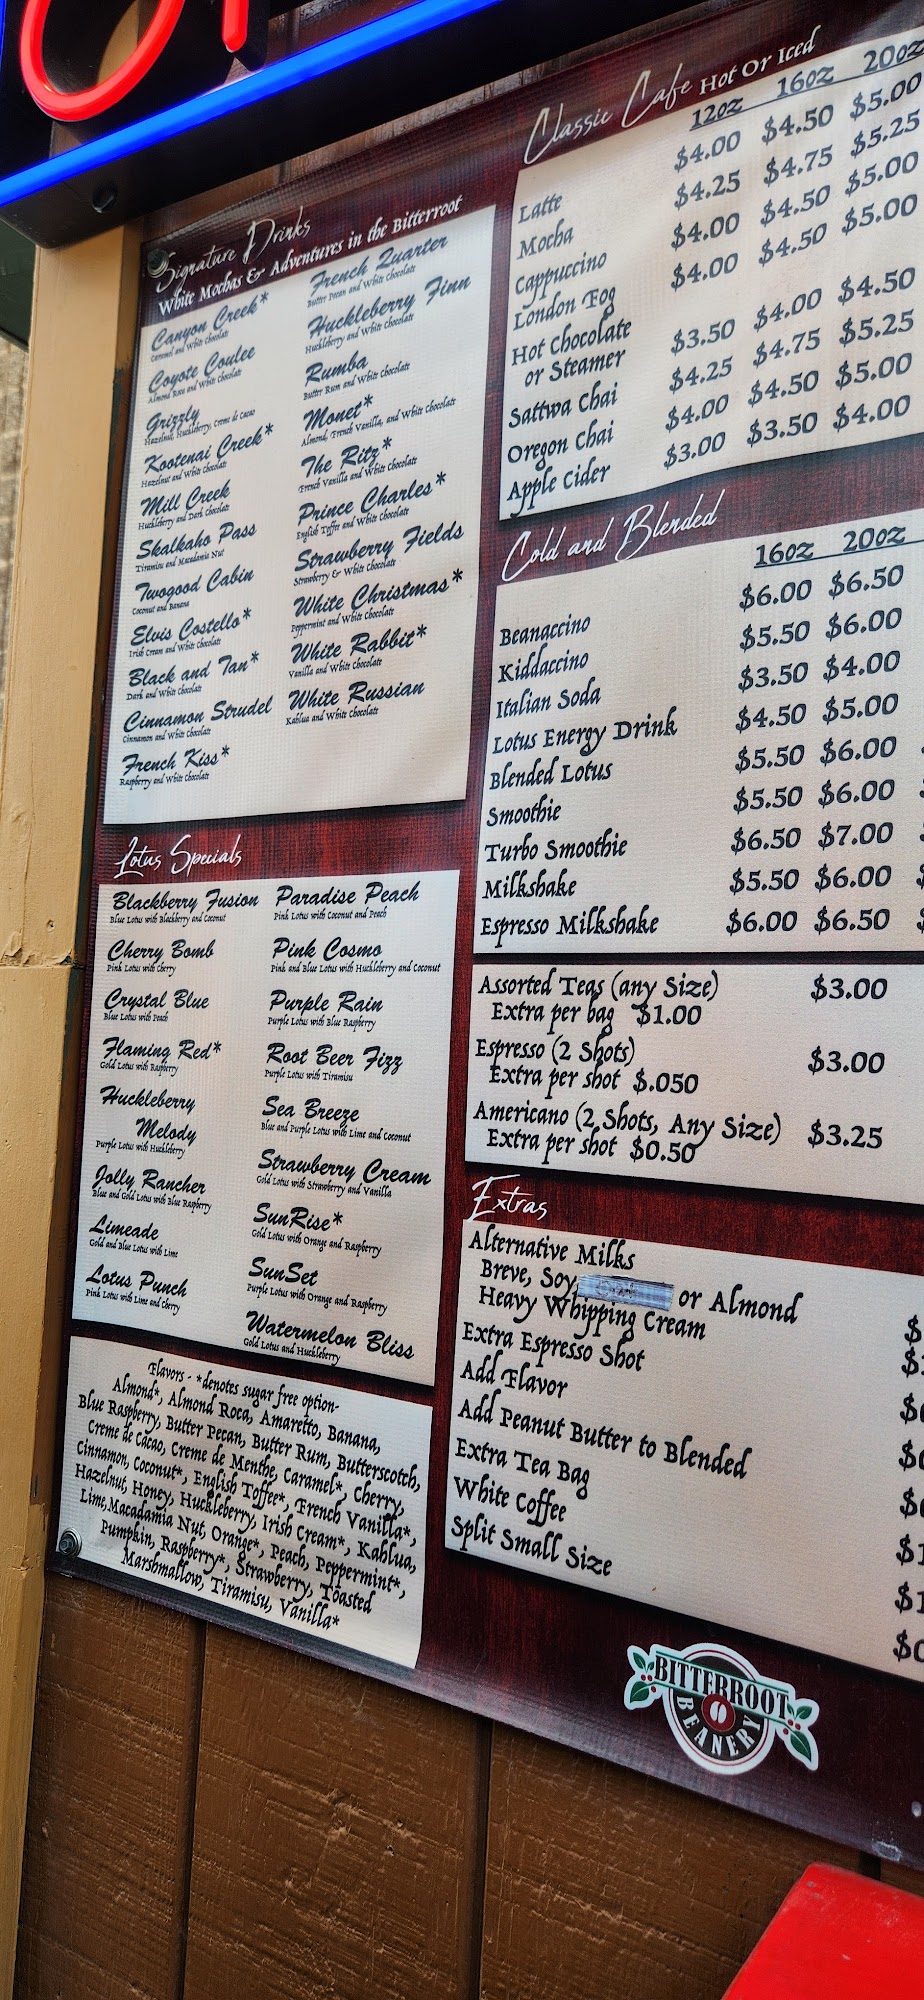 Signature Drinks
White Mochas & Adventures in the Bitterroot
Canyon Creek*
Caramel and White Chocolate
Coyote Coulee
Almond Roca and White Chocolate
Grizzly
Hazelnut, Huckleberry, Creme de Cacao
Kootenai Creek*
Hazelnut and White Chocolate
Mill Creek
Huckleberry and Dark Chocolate
Skalkaho Pass
Tiramisu and Macadamia Nut
Twogood Cabin
Coconut and Banana
Elvis Costello*
Irish Cream and White Chocolate
Black and Tan*
Dark and White Chocolate
Cinnamon Strudel
Cinnamon and White Chocolate
French Kiss*
Raspberry and White Chocolate
French Quarter
Butter Pecan and White Chocolate
Huckleberry Finn
Huckleberry and White Chocolate
Rumba
Butter Rum and White Chocolate
Monet*
Almond, French Vanilla, and White Chocolate
The Ritz*
French Vanilla and White Chocolate
Prince Charles*
English Toffee and White Chocolate
Strawberry Fields
Strawberry & White Chocolate
White Christmas*
Peppermint and White Chocolate
White Rabbit*
Vanilla and White Chocolate
White Russian
Kahlua and White Chocolate
Lotus Specials
Blackberry Fusion
Blue Lotus with Blackberry and Coconut
Cherry Bomb
Pink Lotus with Cherry
Crystal Blue
Blue Lotus with Peach
Flaming Red*
Gold Lotus with Raspberry
Huckleberry
Melody
Purple Lotus with Huckleberry
Jolly Rancher
Blue and Gold Lotus with Blue Raspberry
Limeade
Gold and Blue Lotus with Lime
Lotus Punch
Pink Lotus with Lime and Cherry
Paradise Peach
Pink Lotus with Coconut and Peach
Pink Cosmo
Pink and Blue Lotus with Huckleberry and Coconut
Purple Rain
Purple Lotus with Blue Raspberry
Root Beer Fizz
Purple Lotus with Tiramisu
Sea Breeze
Blue and Purple Lotus with Lime and Coconut
Strawberry Cream
Gold Lotus with Strawberry and Vanilla
SunRise*
Gold Lotus with Orange and Raspberry
SunSet
Purple Lotus with Orange and Raspberry
Watermelon Bliss
Gold Lotus and Huckleberry
Flavors - *denotes sugar free option-
Almond*, Almond Roca, Amaretto, Banana,
Blue Raspberry, Butter Pecan, Butter Rum, Butterscotch,
Creme de Cacao, Creme de Menthe, Caramel*, Cherry,
Cinnamon, Coconut*, English Toffee*, French Vanilla*,
Hazelnut, Honey, Huckleberry, Irish Cream*, Kahlua,
Lime, Macadamia Nut, Orange*, Peach, Peppermint*,
Pumpkin, Raspberry*, Strawberry, Toasted
Marshmallow, Tiramisu, Vanilla*
Classic Cafe Hot Or Iced
12oz 16oz 20oz
Latte $4.00 $4.50 $5.00
Mocha $4.25 $4.75 $5.25
Cappuccino $4.00 $4.50 $5.00
London Fog $4.00 $4.50 $5.00
Hot Chocolate
or Steamer $3.50 $4.00 $4.50
Sattwa Chai $4.25 $4.75 $5.25
Oregon Chai $4.00 $4.50 $5.00
Apple Cider $3.00 $3.50 $4.00
Cold and Blended
16oz 20oz
Beanaccino $6.00 $6.50
Kiddaccino $5.50 $6.00
Italian Soda $3.50 $4.00
Lotus Energy Drink $4.50 $5.00
Blended Lotus $5.50 $6.00
Smoothie $5.50 $6.00
Turbo Smoothie $6.50 $7.00
Milkshake $5.50 $6.00
Espresso Milkshake $6.00 $6.50
Assorted Teas (any Size) $3.00
Extra per bag $1.00
Espresso (2 Shots) $3.00
Extra per shot $.050
Americano (2 Shots, Any Size) $3.25
Extra per shot $0.50
Extras
Alternative Milks
Breve, Soy, or Almond
Heavy Whipping Cream
Extra Espresso Shot
Add Flavor
Add Peanut Butter to Blended
Extra Tea Bag
White Coffee
Split Small Size
BITTERROOT
BEANERY